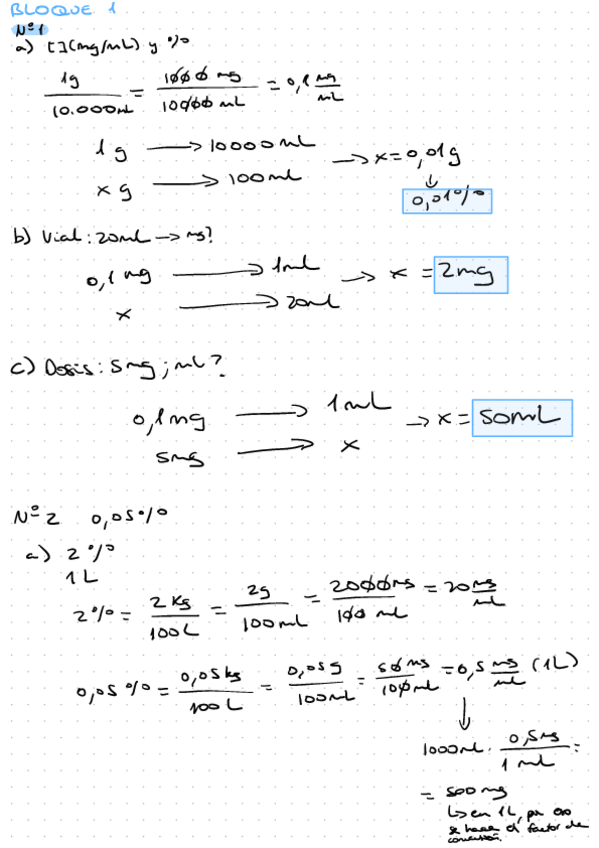 BLOQUE 1
Nº1
a) [ ](mg/mL) y %
1g / 10.000mL = 1000 mg / 10000 mL = 0,1 mg/mL
1 g → 10000 mL → x = 0,01g
x g → 100 mL ↓ 0,01%
b) Vial: 20mL → mg?
0,1 mg → 1mL → x = 2mg
x → 20mL
c) Dosis: 5mg; mL?
0,1mg → 1mL → x = 50mL
5mg → x
Nº 2 0,05%
a) 2%
1L
2% = 2 Kg / 100 L = 2g / 100 mL = 2000 mg / 100 mL = 20 mg/mL
0,05% = 0,05 kg / 100 L = 0,05 g / 100mL = 50 mg / 100 mL = 0,5 mg/mL (1L)
↓
1000mL · 0,5mg / 1 mL =
= 500 mg
↳ en 1L, por eso
se hace el factor de
conversión.